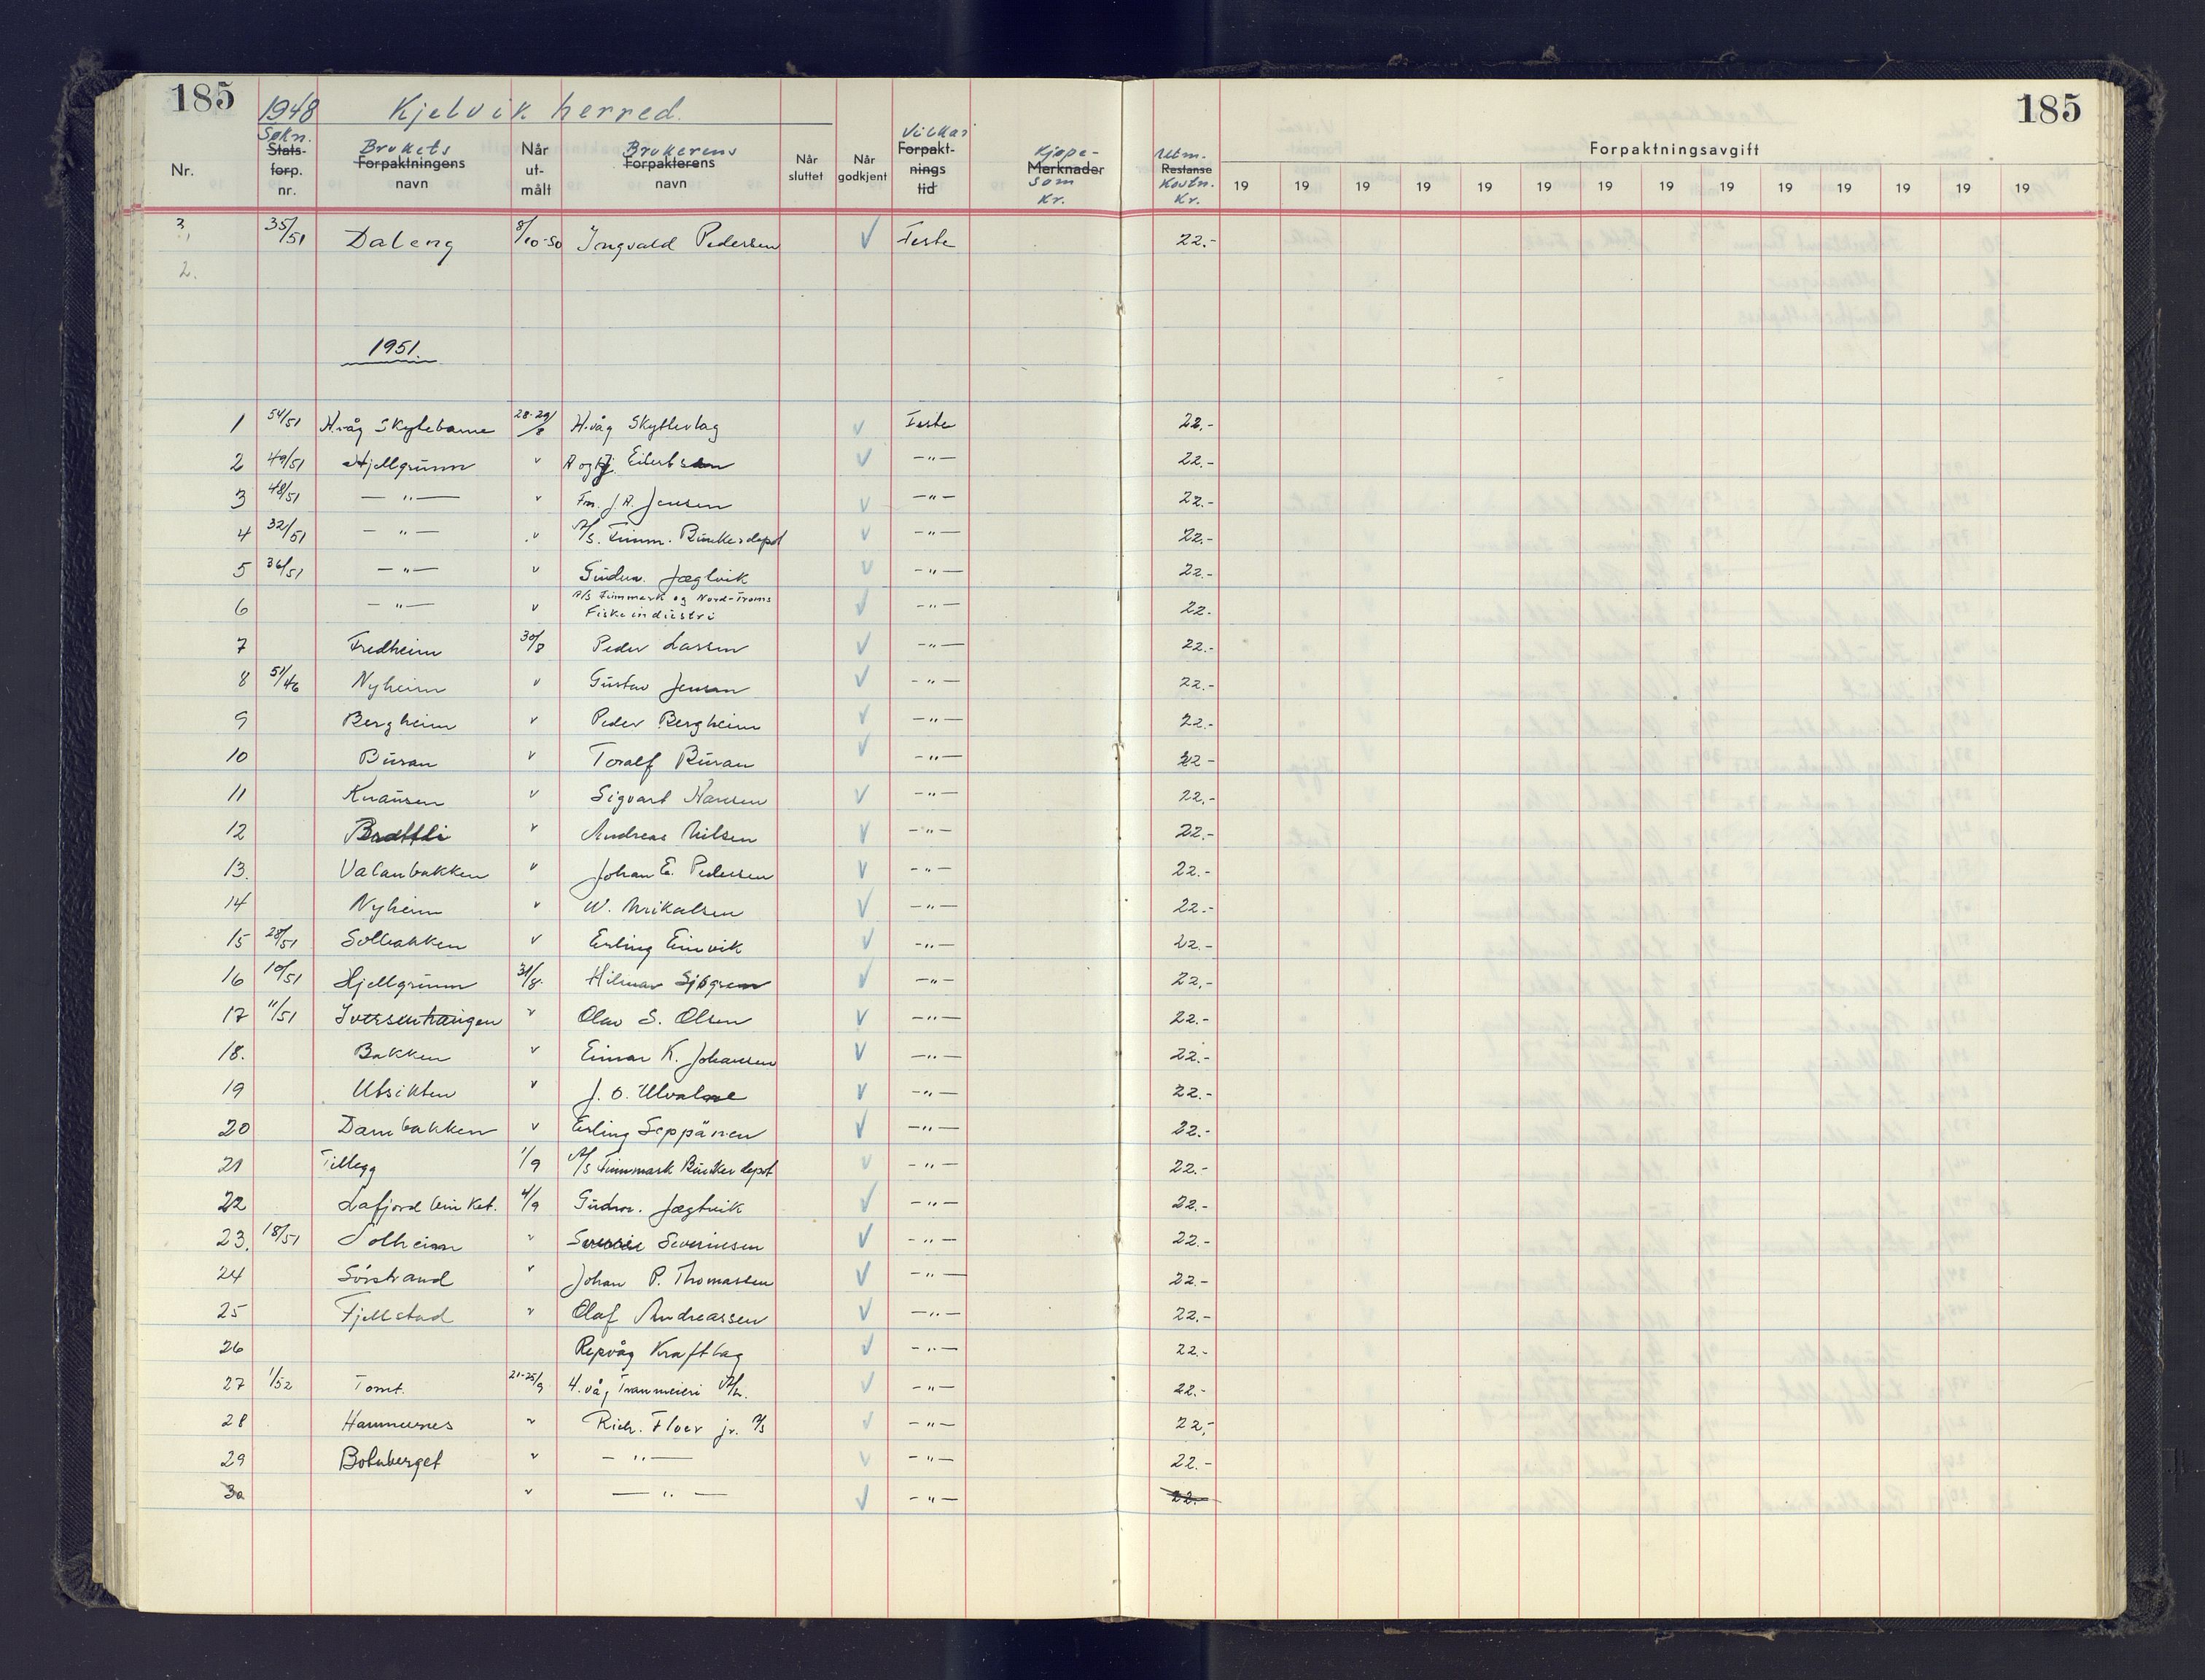 185
185
1948 Kjelvik herred.
Nr. Søkn. Stats-forp. nr. Brukets Forpaktningens navn Når ut-målt Brukerens Forpakterens navn Når sluttet Når godkjent Vilkår Forpakt-nings tid Kjøpe- Merknader som Kr. Utm. Restanse Kostn. Kr. Forpaktningsavgift
19 19 19 19 19 19 19 19 19 19 19 19 19 19
3, 35/51 Daleng 8/10-50 Ingvald Pedersen √ Feste 22.-
2.
1951.
1 54/51 H.våg Skytebane 28-29/8 H.våg Skytterlag √ Feste 22.-
2 49/51 Hjellgrunn " A og J. Eilertsen √ -"- 22.-
3 48/51 -"- " Fm. J.A. Jensen √ -"- 22.-
4 32/51 -"- " A/S. Finnm. Bunkersdepot √ -"- 22.-
5 36/51 -"- " Gudm. Jægtvik √ -"- 22.-
6 -"- " A/S Finnmark og Nord-Troms Fiskeindustri √ -"- 22.
7 Fredheim 30/8 Peder Larsen √ -"- 22.-
8 51/46 Nyheim " Gustav Jensen √ -"- 22.-
9 Bergheim " Peder Bergheim √ -"- 22.-
10 Buran " Toralf Buran √ -"- 22-
11 Knausen " Sigvart Hansen √ -"- 22,-
12 Brattli " Andreas Nilsen √ -"- 22.-
13. Valanbakken " Johan E. Pedersen √ -"- 22.-
14 Nyheim " W. Mikalsen √ -"- 22.-
15 28/51 Solbakken " Erling Einvik √ -"- 22.-
16 10/51 Hjellgrunn 31/8. Hilmar Sjøgren √ -"- 22,-
17 11/51 Iversenhaugen " Olav S. Olsen √ -"- 22.-
18. Bakken " Einar K. Johansen √ -"- 22.-
19 Utsikten " J. O. Ulvalne √ -"- 22.-
20 Dambakken " Erling Seppänen √ -"- 22.-
21 Tillegg 1/9 A/S Finnmark Bunkerdepot √ -"- 22.-
22 Lafjord 4/9 Gudm. Jægtvik √ -"- 22.-
23. 18/51 Solheim " Sverre Severinsen √ -"- 22.-
24 Sørstrand " Johan P. Thomassen √ -"- 22.-
25 Fjellstad " Olaf Andreassen √ -"- 22.-
26 Repvåg Kraftlag √ -"- 22.-
27 1/52 Tomt. 21-25/9 H.våg Tranmeieri A/L. √ -"- 22.-
28 Hamnernes " Rich. Floer jr. A/S √ -"- 22,-
29 Botnberget " -"- √ -"- 22.-
30 " -"- √ -"- 22.-